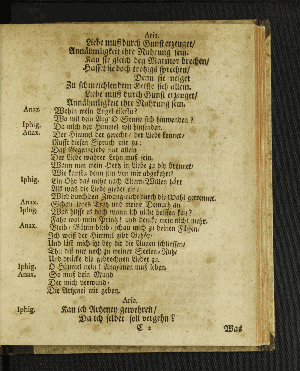 Aria.
Liebe muß durch Gunst erzeuget/
Annämligkeit ihre Nahrung seyn.
Kan sie gleich den Marmor brechen/
Hasset sie doch trotzigs sprechen/
Denn sie neiget
Zu schmeichlendem Geiste sich allein.
Liebe muß durch Gunst erzeuget/
Annähmligkeit ihre Nahrung sein.
Anax. Wohin mein Engel
Wo wil dein Aug' O Sonne sich hinwenden?
Iphig. Da mich der Himmel
Anax. Der Himmel der gerecht / der Liebe kennet/
Ruffe diesen Spruch mir zu:
Daß Gegenliebe nur allein
Der Liebe wahrer Lohn muß sein.
Wann nun mein Hertz in Liebe zu dir brennet/
Wie kanstu denn sein von mir abgekehrt?
Iphig. Ein Ohr das mehr nach Willen hört
Als was die Liebe giebet ein/
Wird durch den Zwang nicht durch die Wahl gewonnen.
Anax. Schau jenes Trotz und meine Demuth an.
Iphig. Was hilfft es doch wann ich nicht helffen kan?
Fahr wol mein Printz! und denke mein nicht mehr.
Anax. Bleib / Göttin bleib / schau mich zu deinen Füßen/
Ich weiß der Himmel gibt Gehör/
Und läst mich bey dir die Augen schliessen/
Thu diß mir noch zu meiner Seelen-Ruhe
Und drücke die gebrochen Lieder zu.
Iphig. O Himmel nein! Anax muß leben.
Anax. So muß dein Mund
Der mich verwund
Die Artzenei mir geben.
Aria.
Iphig. Kan ich Artzeney gewehren/
Da ich selber soll vergehn?
C 2 Was